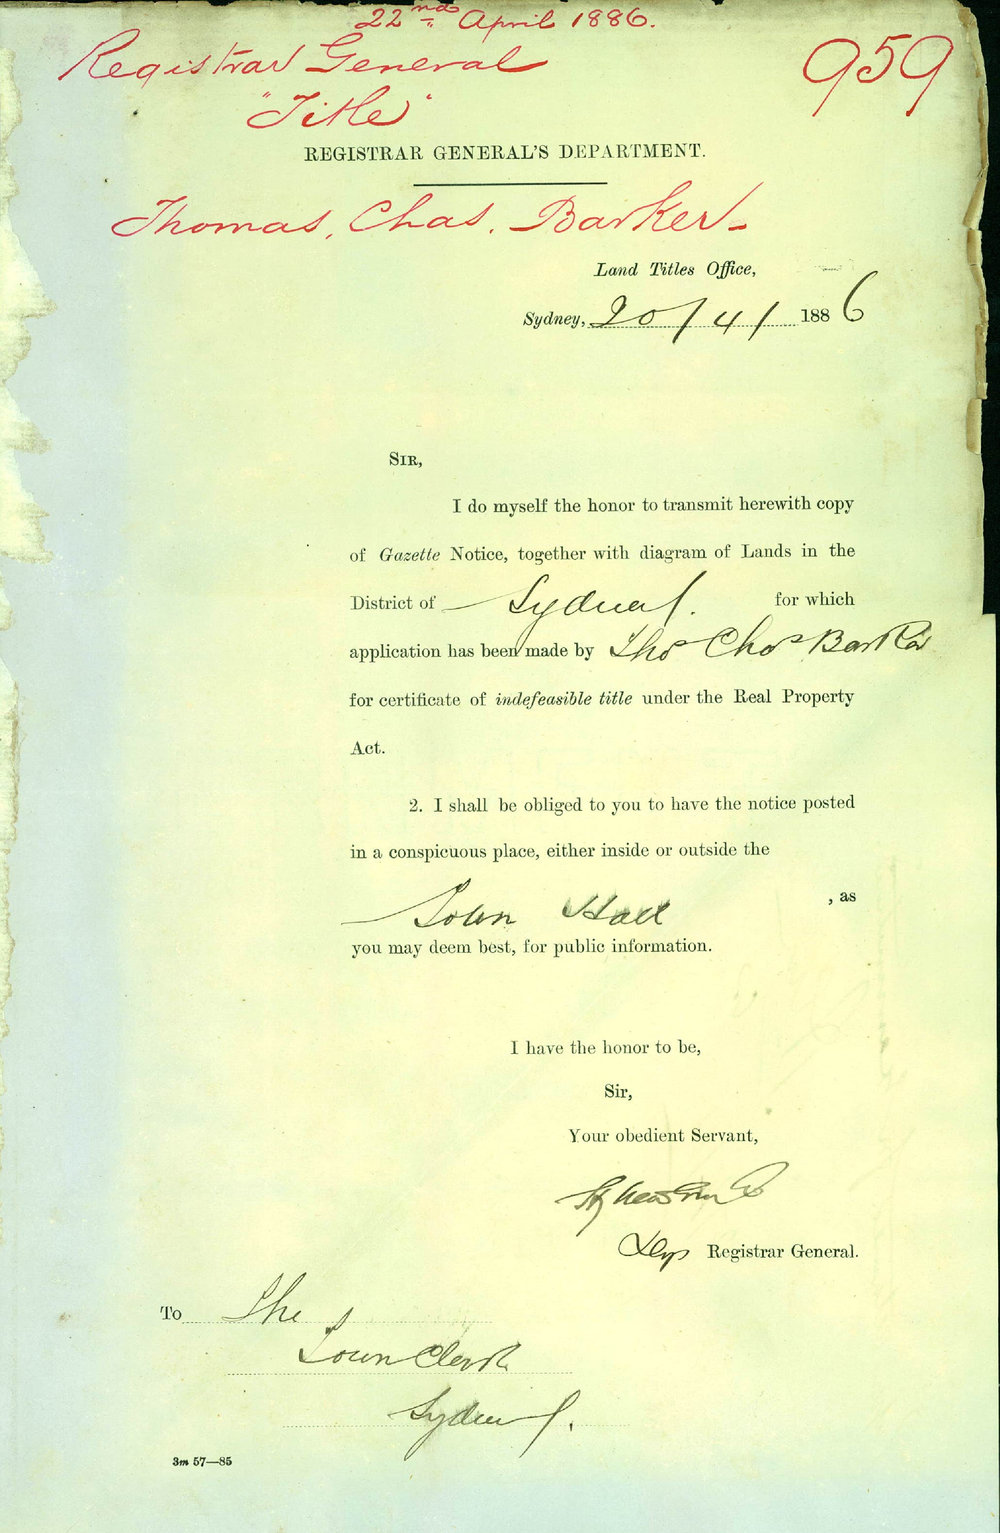 22nd April 1886.
Registrar General
959
"Title"
REGISTRAR GENERAL'S DEPARTMENT.
Thomas, Chas. Barker
Land Titles Office,
Sydney, 20/4/ 1886
SIR,
I do myself the honor to transmit herewith copy
of Gazette Notice, together with diagram of Lands in the
District of Sydney. for which
application has been made by Thos Chas Barker
for certificate of indefeasible title under the Real Property
Act.
2. I shall be obliged to you to have the notice posted
in a conspicuous place, either inside or outside the
Town Hall , as
you may deem best, for public information.
I have the honor to be,
Sir,
Your obedient Servant,
Dep Registrar General.
To The
Town Clerk
Sydney.
3m 57—85